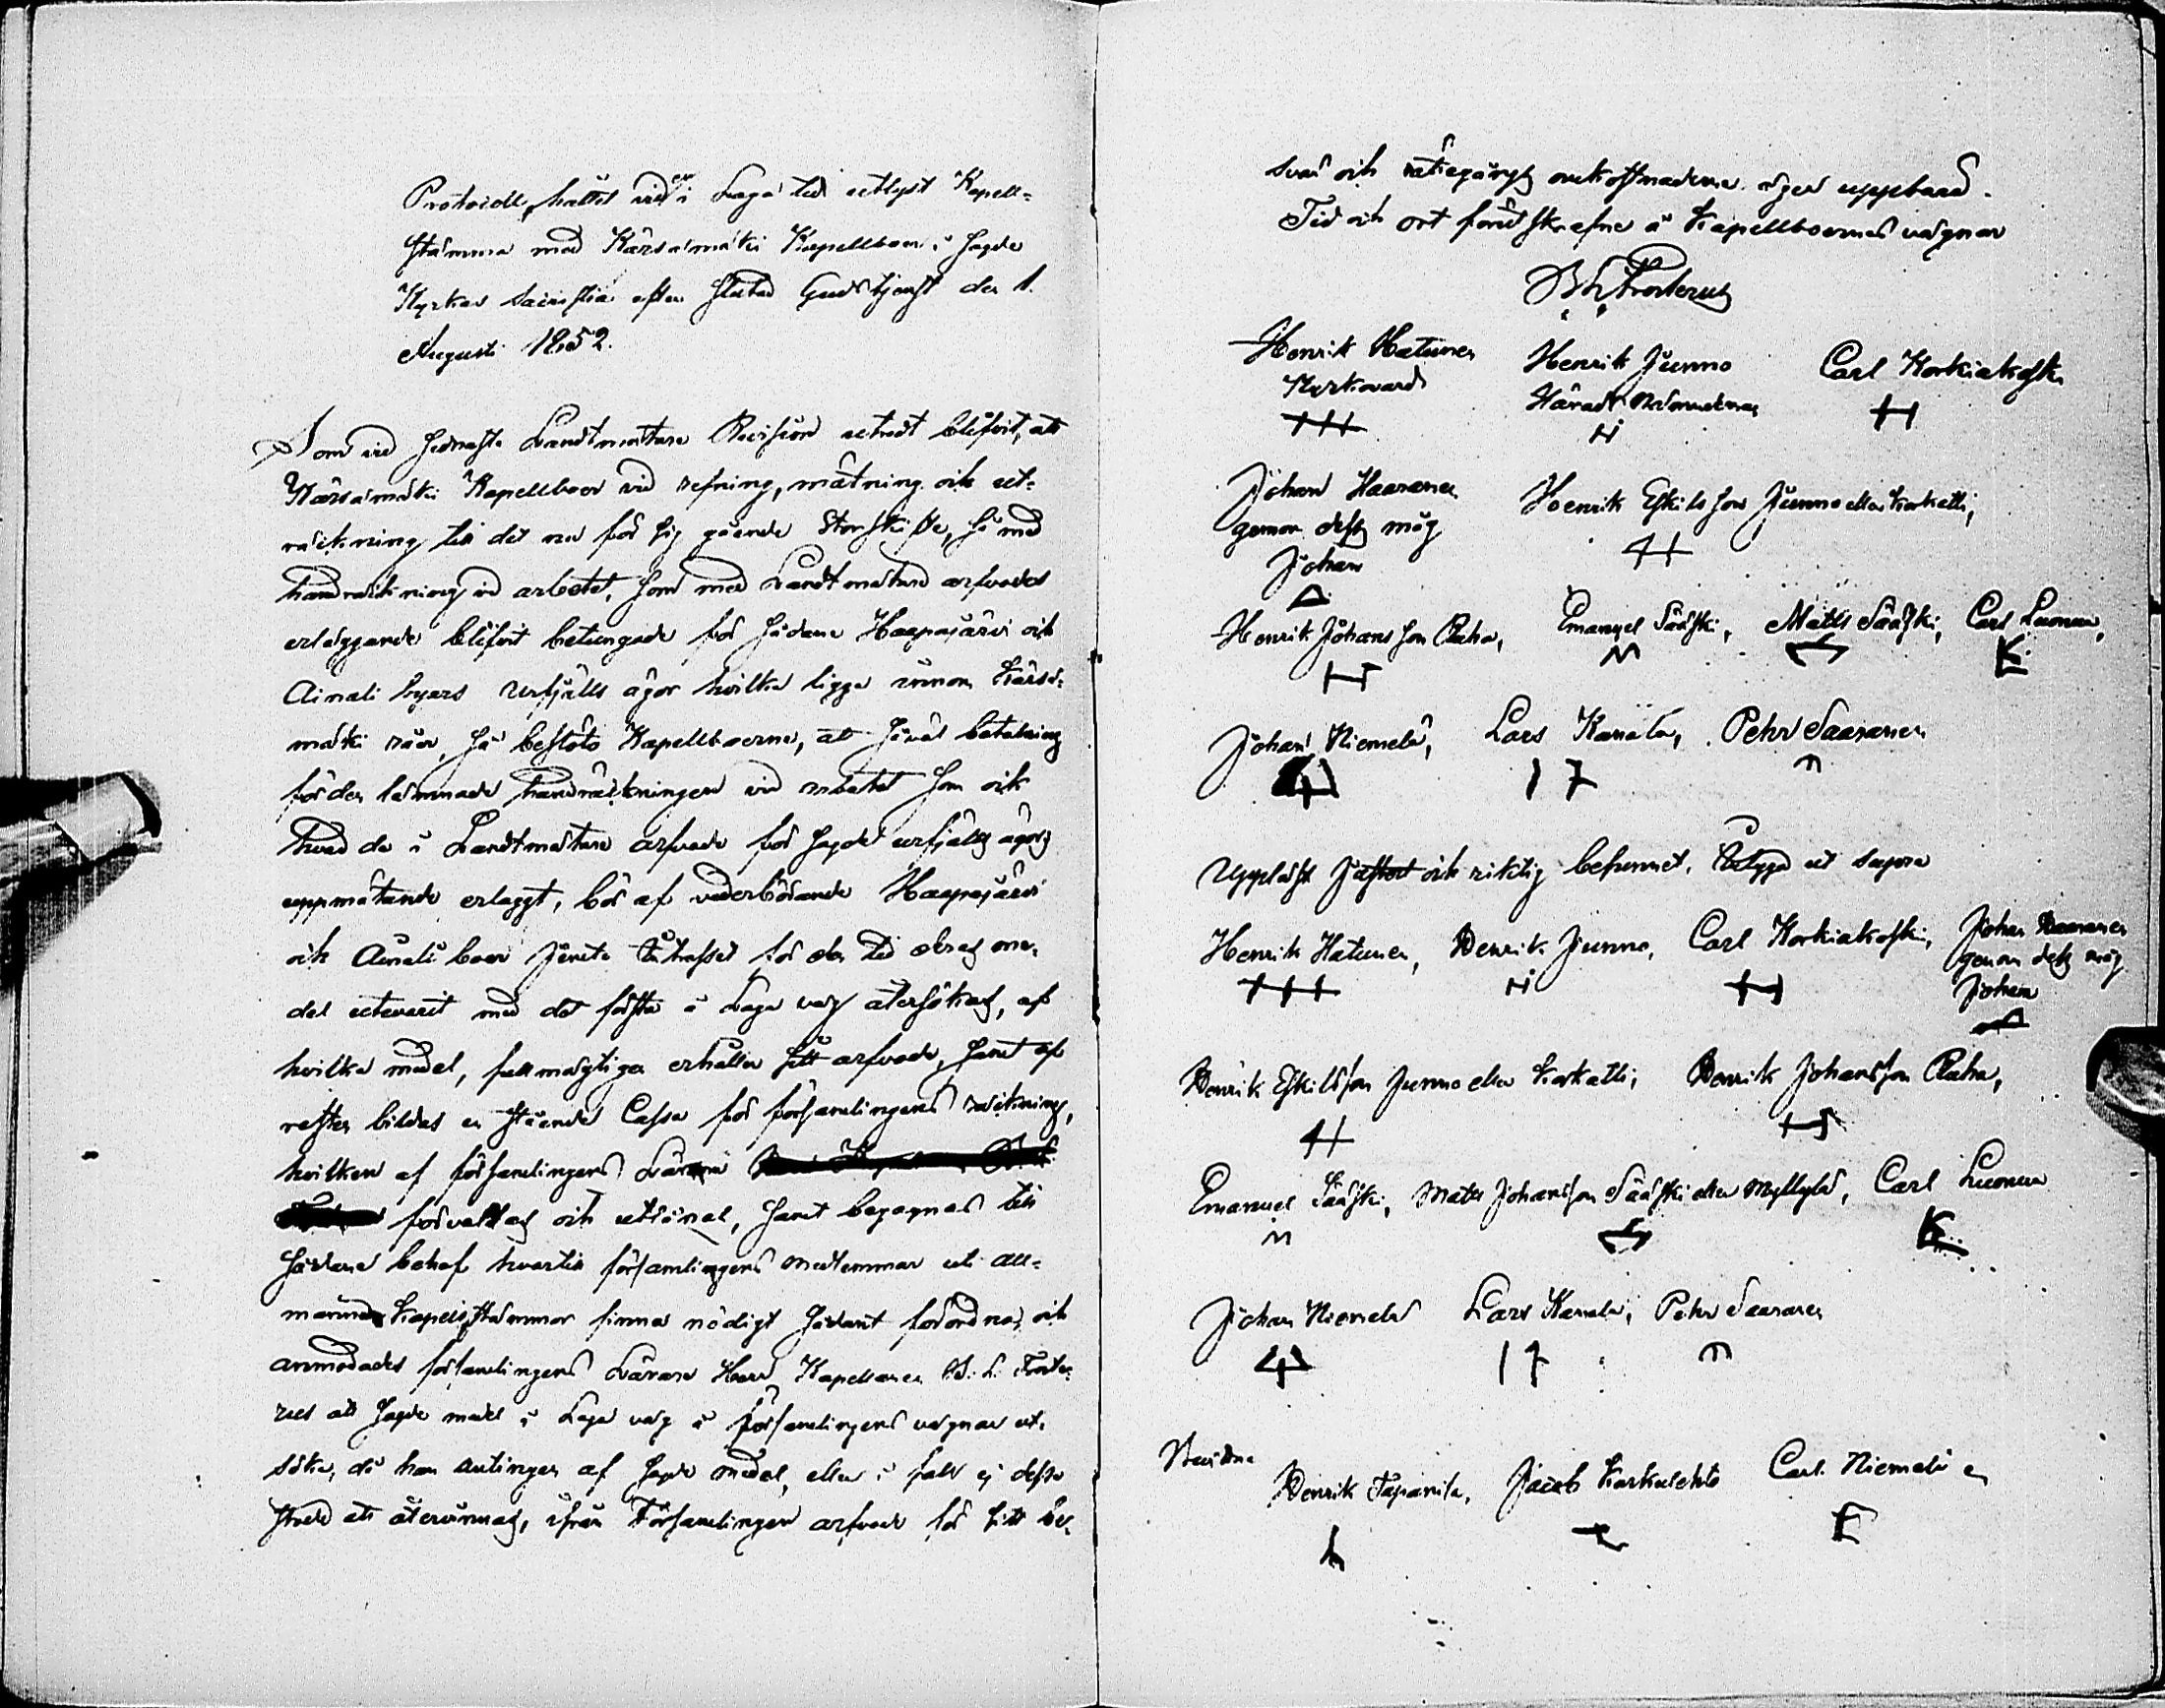 Protocoll, hållet vid en i Laga tid utlyst Kapell-
stämma med Kärsämäki Kapellboer i sagde
Kyrkas Sacristia efter slutad Gudstjenst den 1.
Augusti 1852.
Som vid sednaste Landtmätare Revision utredt blifvit, att
Kärsämäki Kapellboer vid refning, mätning och ut-
räckning till det nu för sig gående Storskifte, så med
handräckning vid arbetet, som med Landtmätare arfvodets
erläggande blifvit betungade för sådane Haapajärvi och
Ainali byars urfjälls ägor hvilka ligga innom Kärsä-
mäki råer, så beslöto Kapellboerne, att såväl betalning
för den lemnade handräckningen vid arbetet som ock
hvad de i Landtmätare arfvode för sagde urfjälls ägors
uppmätande erlaggt, bör af vederbörande Haapajärvi
och Ainali boer jämte Intresset för den tid desse me-
del utevarit med det första i Laga väg återsökas, af
hvilka medel, fullmägtigen erhåller sitt arfvode, samt af
resten bildas en stående Cassa för församlingens räckning,
hvilken af församlingens Lärare
förvaltas och utlånas, samt begagnas till
sådane behof hvartill församlingens medlemmar uti all-
männa Kapellstämmor finna nödigt sådant förordna, och
anmodades församlingens Lärare Herr Kapellanen B. L. Froste-
rus att sagde medel i Laga väg å församlingens vägnar ut-
söka, då han antingen af sagde medel, eller i fall ej desse
stode att återvinnas, ifrån Församlingen arfvode för sitt be-
svär och rättegångs omkostnaderne äger uppbära.
Tid och ort förutskrefne å Kapellboernes vägnar
B L Frosterus
Henrik Hatunen Henrik Junno Carl Korkiakoski
Kyrkovärd Härads Nämndeman
Johan Haaranen Henrik Eskilsson Junno eller Karhatti,
genom dess måg
Johan
Henrik Johansson Raha, Emanuel Sääski, Matts Sääski, Carl Luonua,
Johan Niemelä, Lars Kanala, Pehr Saaranen
Uppläst justerat och riktig befunnet, betyga ut supra
Henrik Hatunen, Henrik Junno, Carl Korkiakoski, Johan Haaranen
genom dess måg
Johan
Henrik Eskilsson Junno eller Karhatti, Henrik Johansson Raha,
Emanuel Sääski, Matts Johansson Sääski eller Myllylä, Carl Luonua
Johan Niemelä Lars Kanala, Pehr Saaranen
Bevittna
Henrik Tapanila, Jacob Karhulehto Carl Niemelä